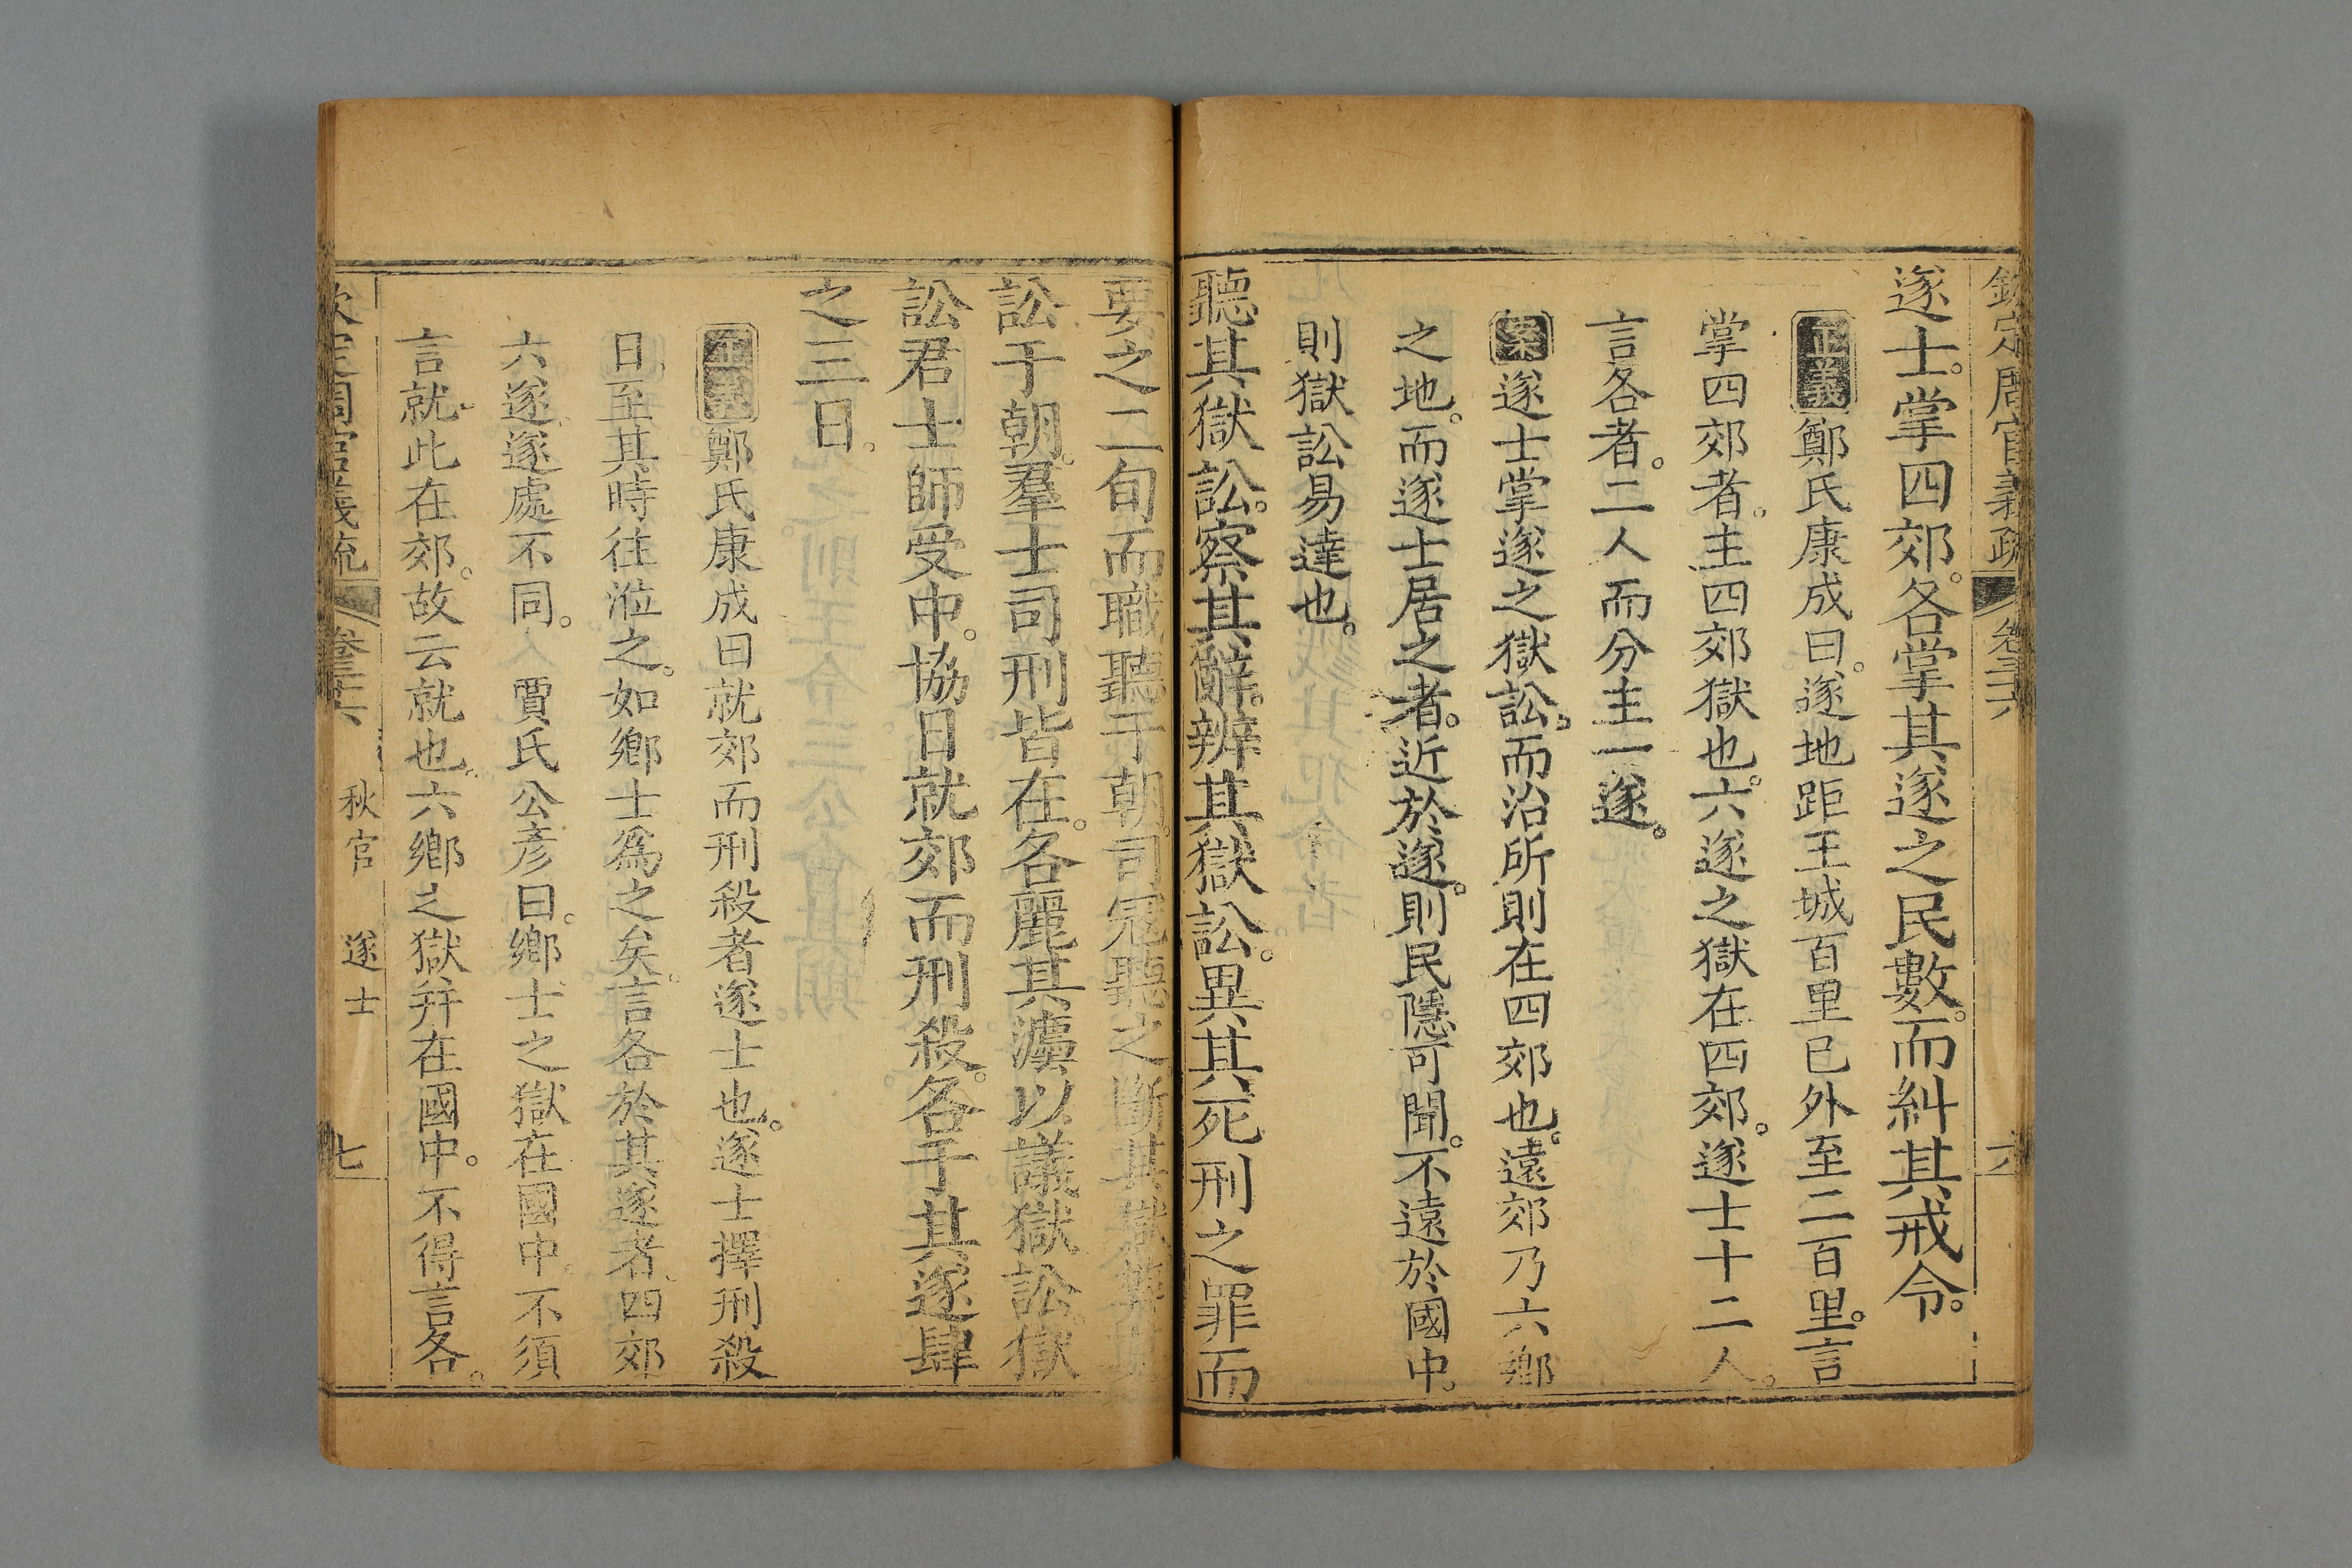 欽定周官義疏 卷三十六 六
遂士。掌四郊。各掌其遂之民數。而糾其戒令。
正義鄭氏康成曰。遂地距王城百里已外至二百里。言
掌四郊者。主四郊獄也。六遂之獄在四郊。遂士十二人。
言各者。二人而分主一遂。
案遂士掌遂之獄訟。而治所則在四郊也。遠郊乃六鄉
之地。而遂士居之者。近於遂。則民隱可聞。不遠於國中。
則獄訟易達也。
聽其獄訟。察其辭。辨其獄訟。異其死刑之罪而
要之。二旬而職聽于朝。司寇聽之。斷其獄弊其
訟于朝。羣士司刑皆在。各麗其灋以議獄訟。獄
訟君士師受中。協日就郊而刑殺。各于其遂肆
之三日。
正義鄭氏康成曰就郊而刑殺者遂士也。遂士擇刑殺
日至其時往涖之。如鄉士爲之矣。言各於其遂者。四郊
六遂遂處不同。 賈氏公彦曰。鄉士之獄在國中不須
言就此在郊。故云就也。六鄉之獄并在國中。不得言各。
欽定周官義疏 卷三十六 秋官 遂士 七